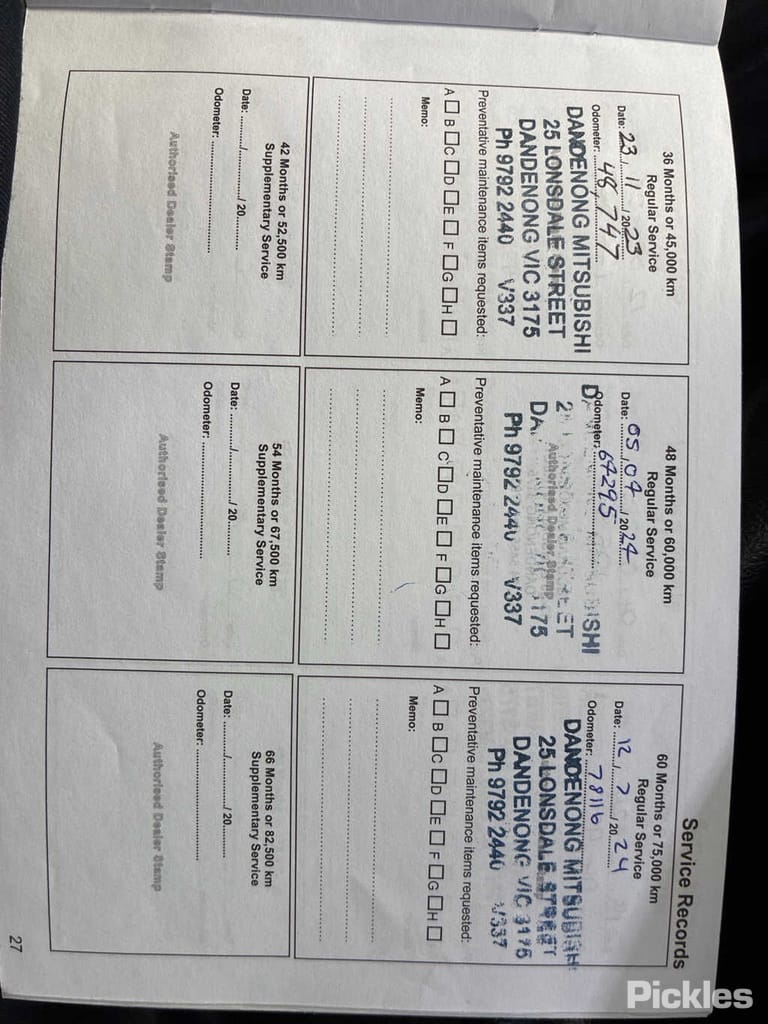 Service Records
36 Months or 45,000 km
Regular Service
Date: 23 / 11 / 2023
Odometer: 48,747
DANDENONG MITSUBISHI
25 LONSDALE STREET
DANDENONG VIC 3175
Ph 9792 2440 V337
Preventative maintenance items requested:
A B C D E F G H
Memo:
42 Months or 52,500 km
Supplementary Service
Date: ........./........./ 20.........
Odometer:
Authorised Dealer Stamp
48 Months or 60,000 km
Regular Service
Date: 05 / 04 / 2024
Odometer: 64295
Authorised Dealer Stamp
Ph 9792 2440 V337
Preventative maintenance items requested:
A B C D E F G H
Memo:
54 Months or 67,500 km
Supplementary Service
Date: ........./........./ 20.........
Odometer:
Authorised Dealer Stamp
60 Months or 75,000 km
Regular Service
Date: 12 / 7 / 2024
Odometer: 78116
DANDENONG MITSUBISHI
25 LONSDALE STREET
DANDENONG VIC 3175
Ph 9792 2440 V337
Preventative maintenance items requested:
A B C D E F G H
Memo:
66 Months or 82,500 km
Supplementary Service
Date: ........./........./ 20.........
Odometer:
Authorised Dealer Stamp
27
Pickles